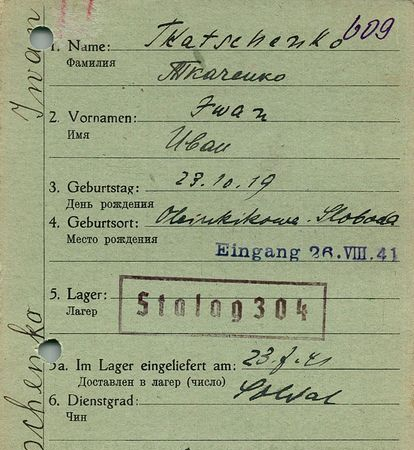 609
1. Name: Tkatschenko
Фамилия
Ткаченко
2. Vornamen: Iwan
Имя
Иван
3. Geburtstag: 23.10.19
День рождения
4. Geburtsort: Sloboda
Место рождения
Eingang 26.VIII.41
5. Lager: Stalag 304
Лагер
5a. Im Lager eingeliefert am: 23.8.41
Доставлен в лагер (число)
6. Dienstgrad: Soldat
Чин
Iwan
schenko